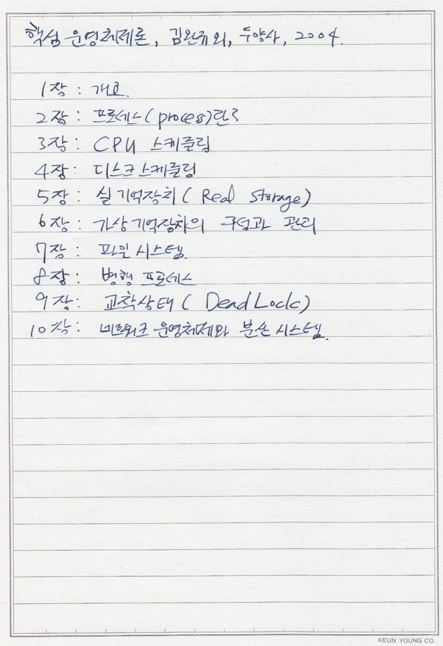 핵심 운영체제론, 김완규외, 두양사, 2004.
1장 : 개요.
2장 : 프로세스(proces)란?
3장 : CPU 스케줄링
4장 : 디스크 스케줄링
5장 : 실 기억장치( Real Storage)
6장 : 가상 기억장치의 구성과 관리
7장 : 파일 시스템.
8장 : 병행 프로세스
9장 : 교착상태 ( DeadLock)
10장 : 네트워크 운영체제와 분산 시스템.
KEUN YOUNG CO.